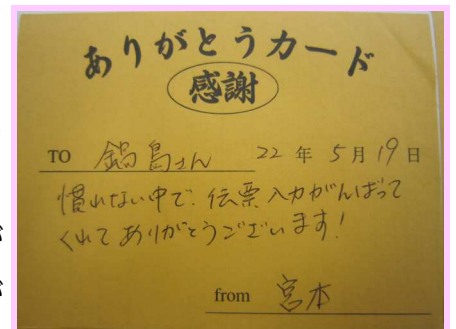 ありがとうカード
感謝
TO 鍋島さん 22年5月19日
慣れない中で、伝票入力がんばって
くれてありがとうございます!
from 宮本
が
が